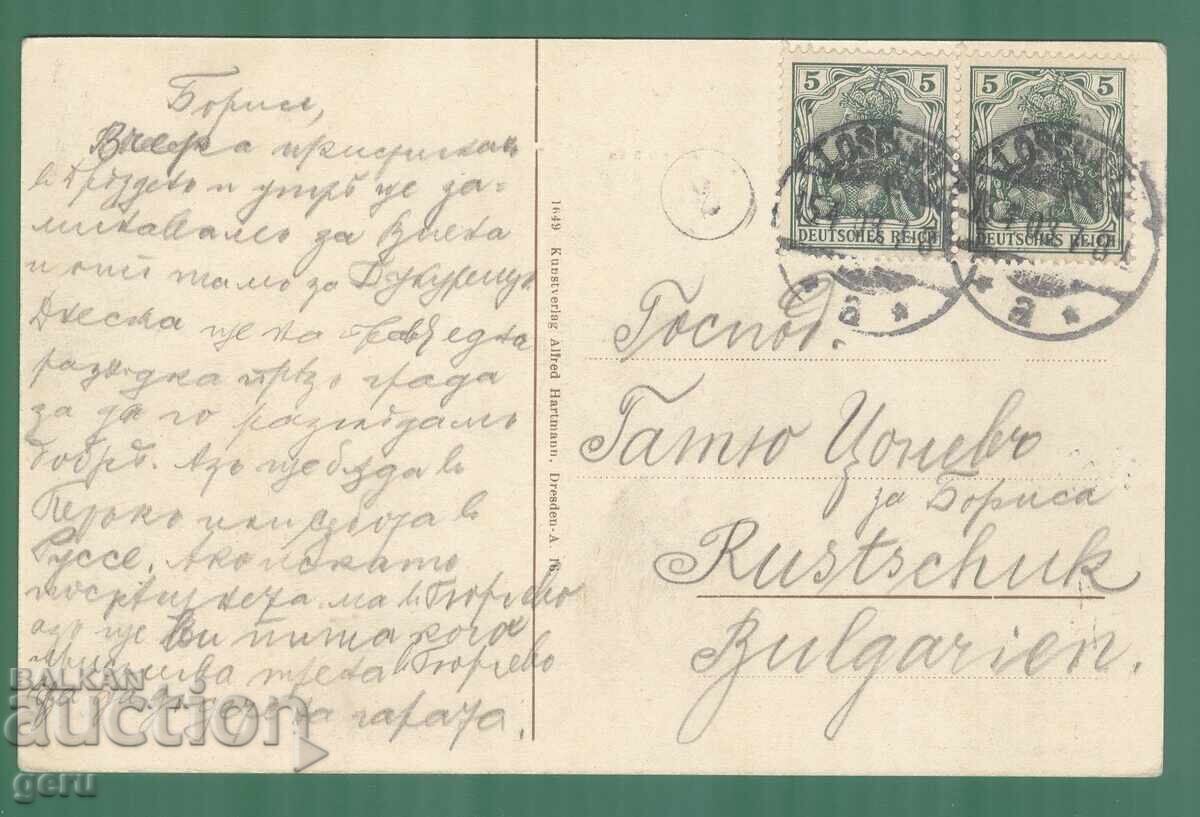 Борисе,
Вчера пристигнахъ
въ Дрезденъ и утрѣ ще за-
минавамъ за Виена
и отъ тамъ за Букурещъ.
Днесъ ще на правѫ една
разходка прѣзъ града
за да го разгледамъ
добрѣ. Азъ ще бѫда въ
или въ
Руссе. Ако искатъ
да ма въ Гюргево
азъ ще ви пиша кога
пристига трена въ Гюргево
на гарата.
1649 Kunstverlag Alfred Hartmann, Dresden-A 16.
5 5
DEUTSCHES REICH
5 5
DEUTSCHES REICH
a
a
Господ.
Гатю Цоневъ
за Бориса
Rustschuk
Bulgarien.
BALKAN
auction
geru